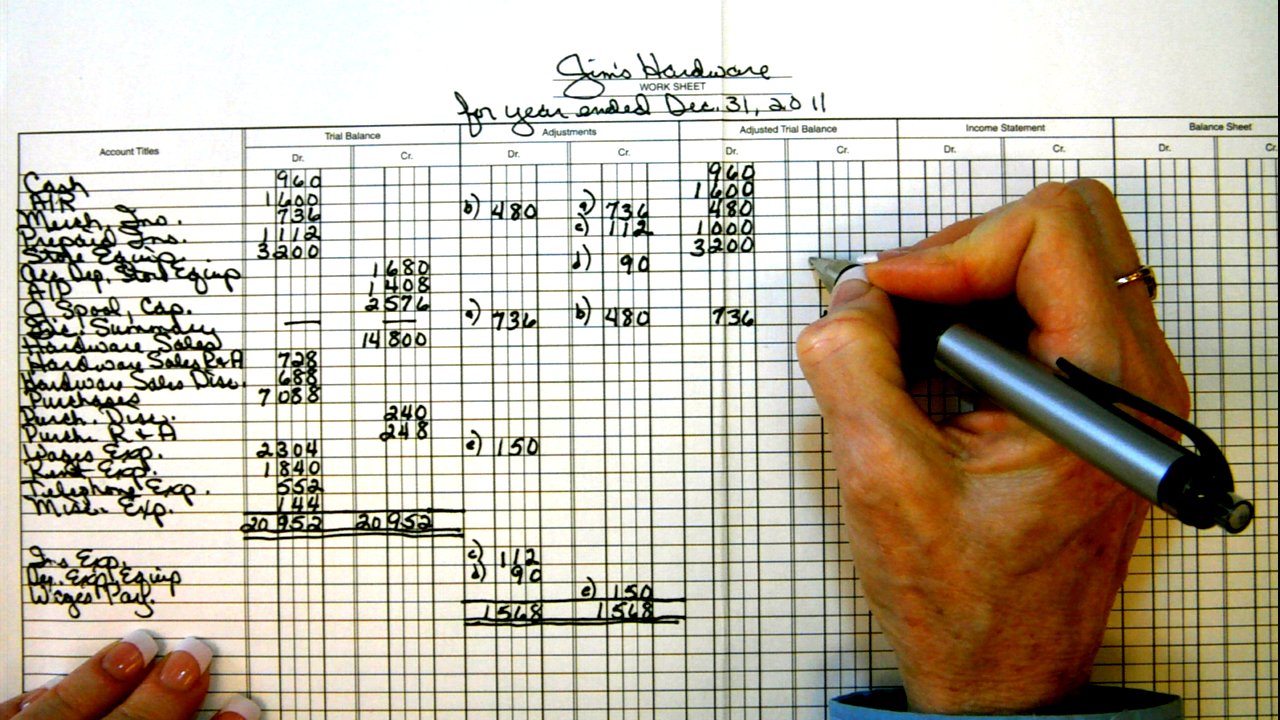 Jim's Hardware
WORK SHEET
for year ended Dec. 31, 2011
Account Titles Trial Balance Adjustments Adjusted Trial Balance Income Statement Balance Sheet
Dr. Cr. Dr. Cr. Dr. Cr. Dr. Cr. Dr. Cr.
Cash 960 960
A/R 1600 1600
Merch. Ins. 736 b) 480 a) 736 480
Prepaid Ins. 1112 c) 112 1000
Store Equip. 3200 3200
Acc. Dep. Store Equip 1680 d) 90
A/P 1408
J. Spool, Cap. 2576
Inc. Summary — — a) 736 b) 480 736
Hardware Sales 14800
Hardware Sales R&A 728
Hardware Sales Disc. 688
Purchases 7088
Purch. Disc. 240
Purch. R&A 248
Wages Exp. 2304 e) 150
Rent Exp. 1840
Telephone Exp. 552
Misc. Exp. 144
20952 20952
Ins Exp. c) 112
Dep. Exp. Equip d) 90
Wages Pay. e) 150
1568 1568